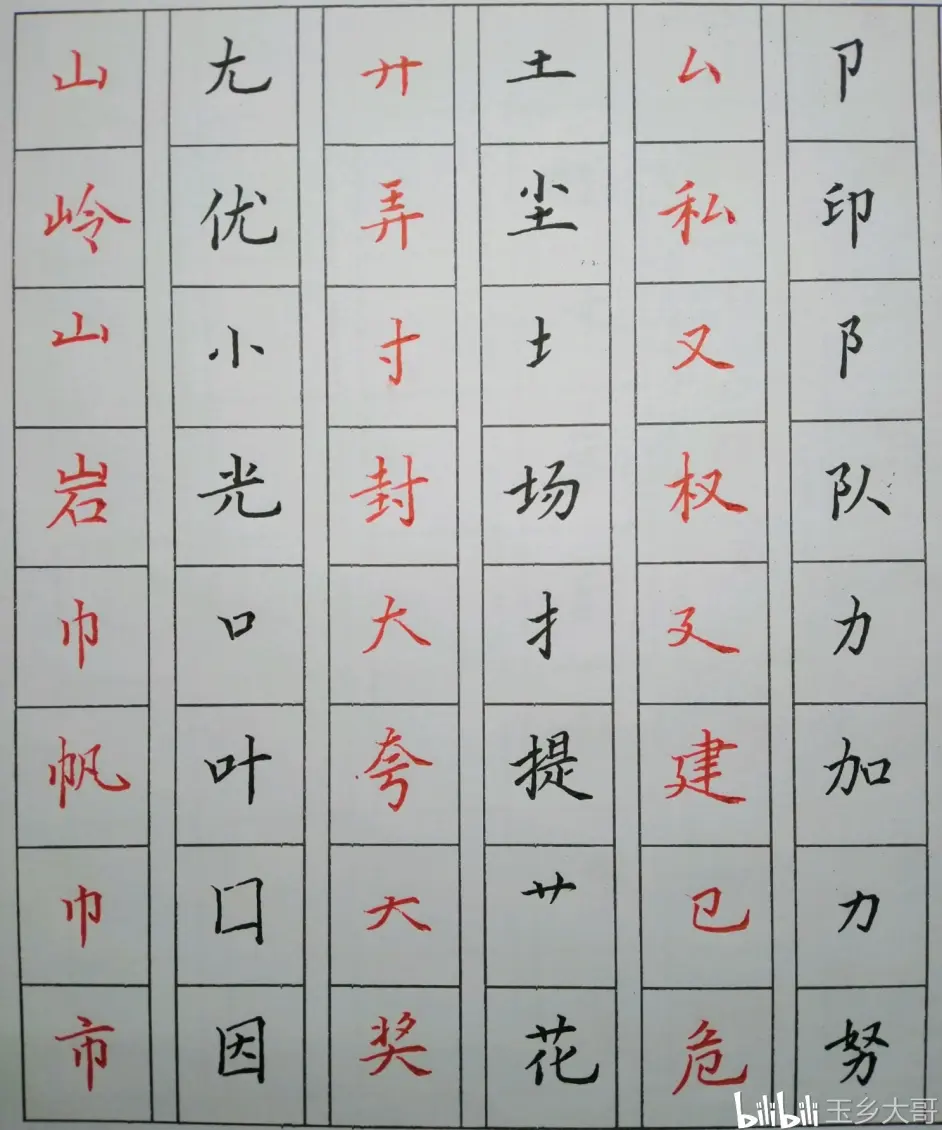 卩印阝队力加力努
厶私又权廴建㔾危
土尘土场扌提艹花
廾弄寸封大夸大奖
尢优小光口叶囗因
山岭山岩巾帆巾市
bilibili 玉乡大哥